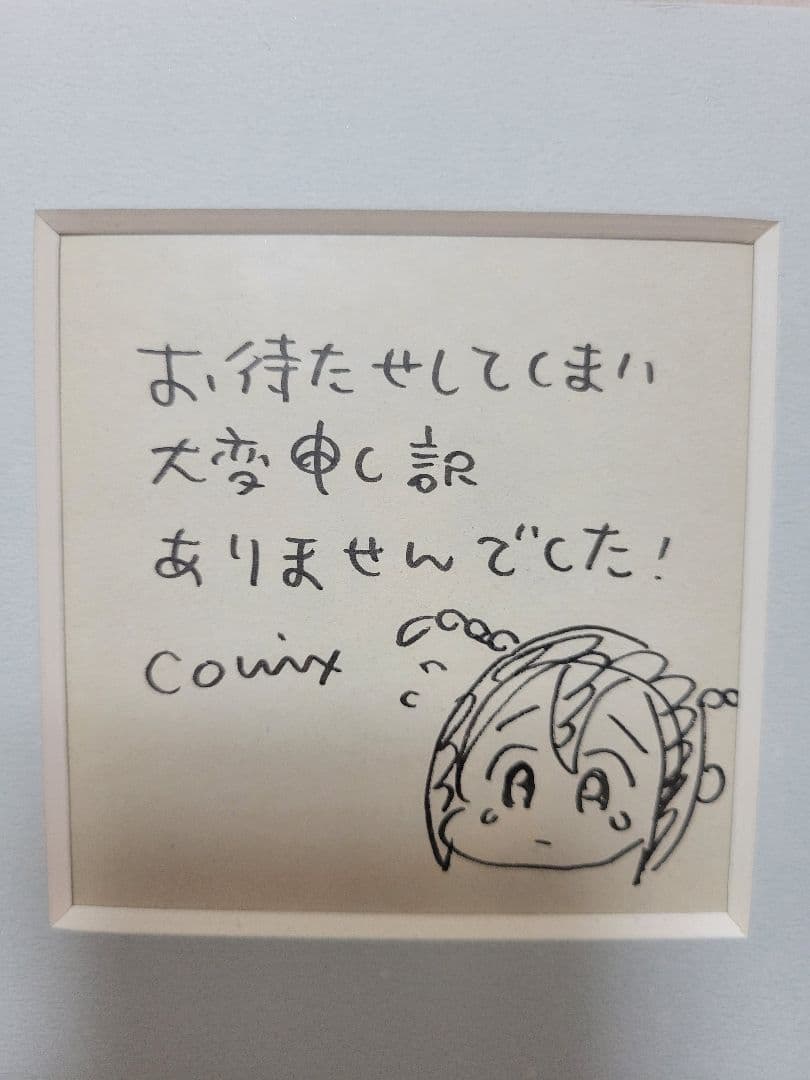 お待たせしてしまい
大変申し訳
ありませんでした!